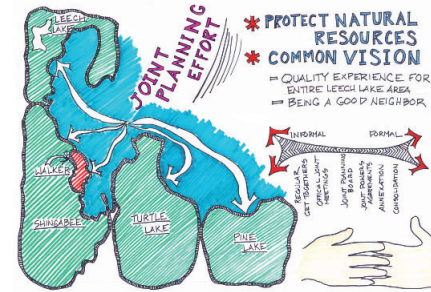 LEECH
LAKE
JOINT
PLANNING
EFFORT
* PROTECT NATURAL
RESOURCES
* COMMON VISION
- QUALITY EXPERIENCE FOR
ENTIRE LEECH LAKE AREA
- BEING A GOOD NEIGHBOR
INFORMAL
FORMAL
REGULAR
GET TOGETHERS
OFFICIAL JOINT
MEETINGS
JOINT PLANNING
BOARD
JOINT POWERS
AGREEMENTS
ANNEXATION
CONSOLIDATION
WALKER
SHINGABEE
TURTLE
LAKE
PINE
LAKE